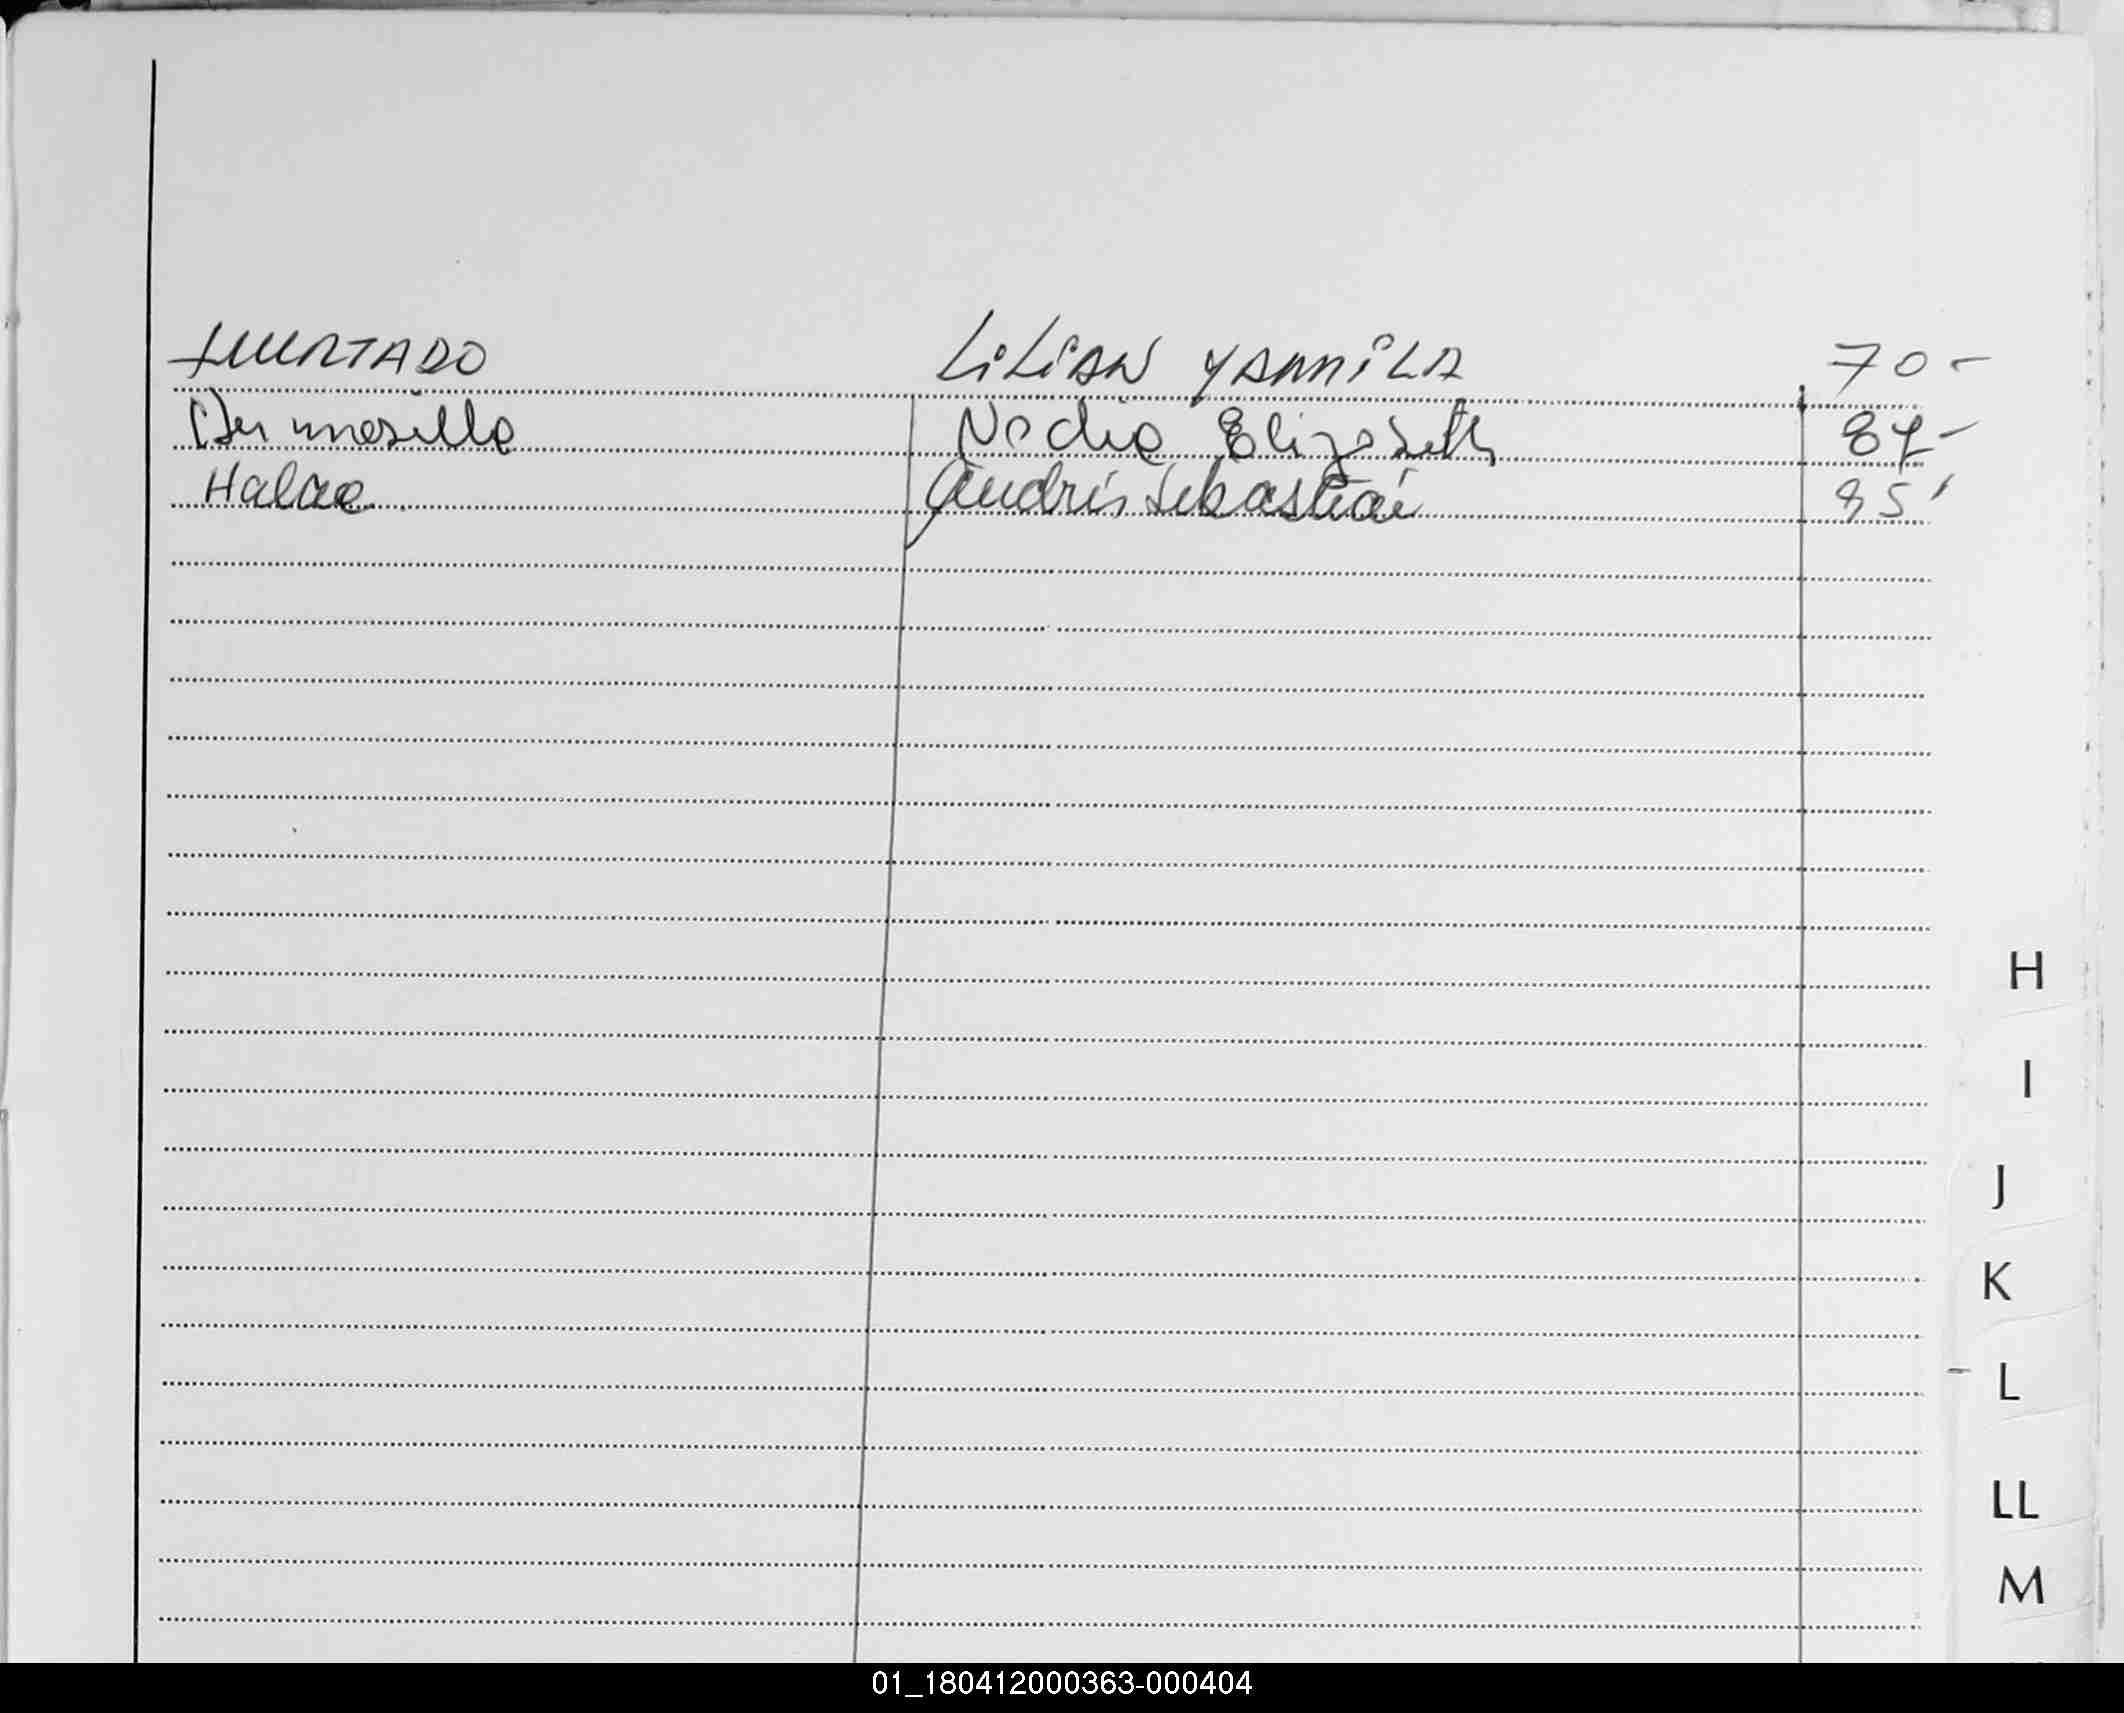 HURTADO LILIAN YAMILA 70-
Hermosilla Nadia Elizabeth 84-
Halac Andrés Sebastián 95'
H
I
J
K
- L
LL
M
01_180412000363-000404